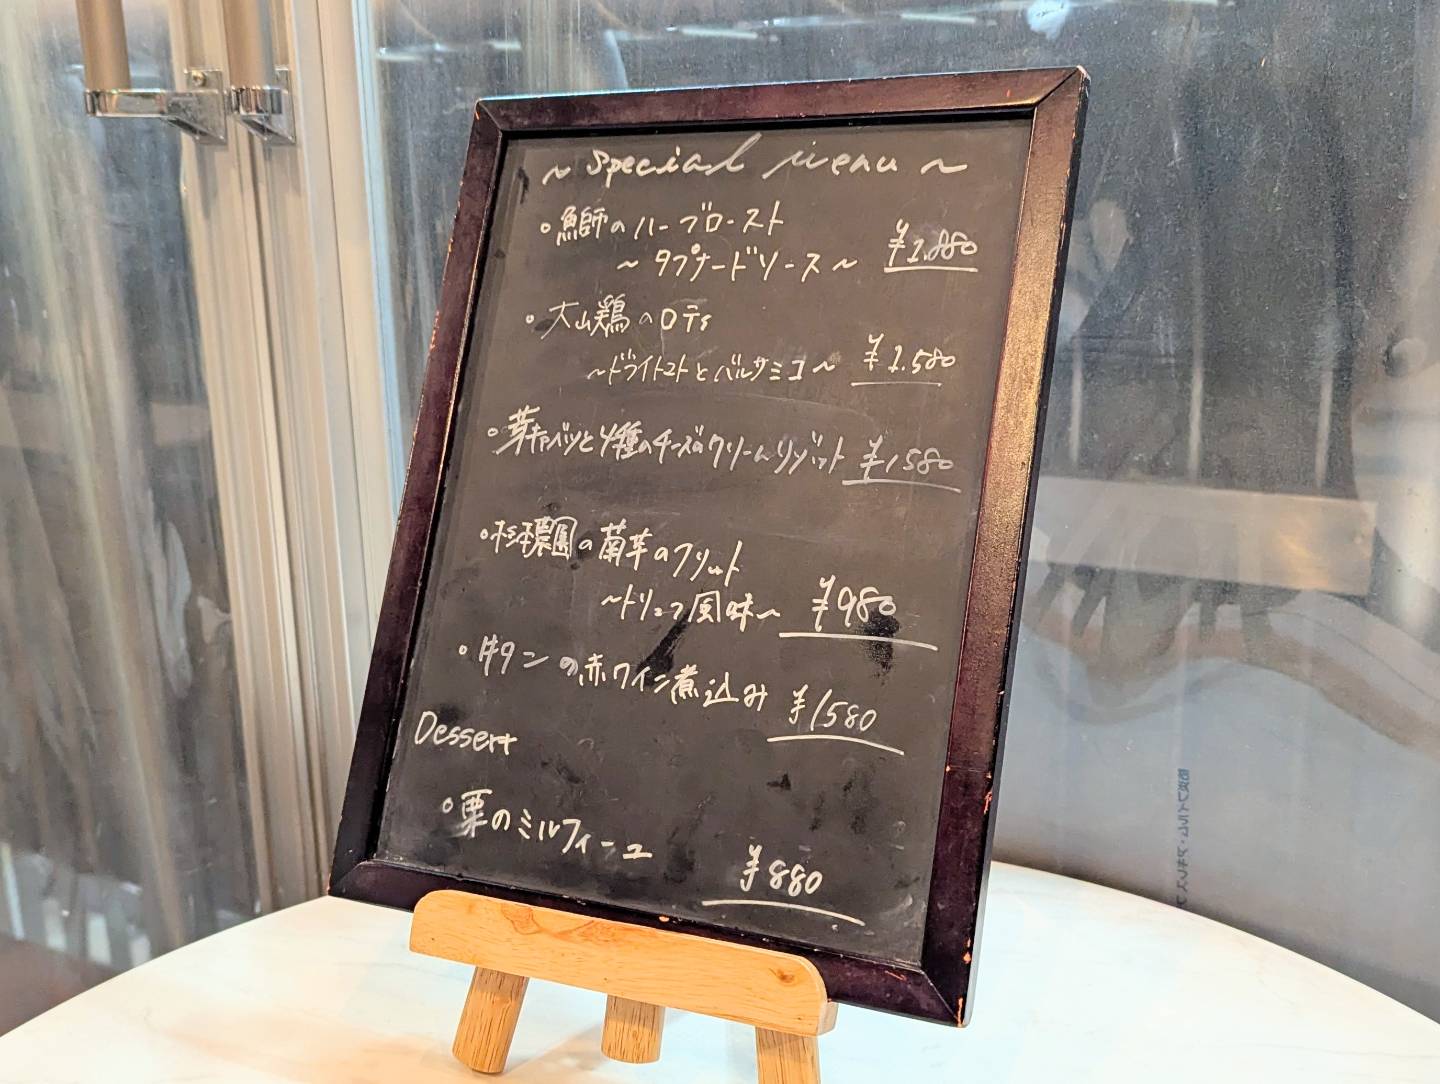 ~ Special Menu ~
・鰤のハーブロースト
~タプナードソース~ ¥1.880
・大山鶏のロティ
~ドライトマトとバルサミコ~ ¥1.580
・芽キャベツと4種のチーズのクリームリゾット ¥1580
・杉本農園の菊芋のフリット
~トリュフ風味~ ¥980
・牛タンの赤ワイン煮込み ¥1580
Dessert
・栗のミルフィーユ ¥880